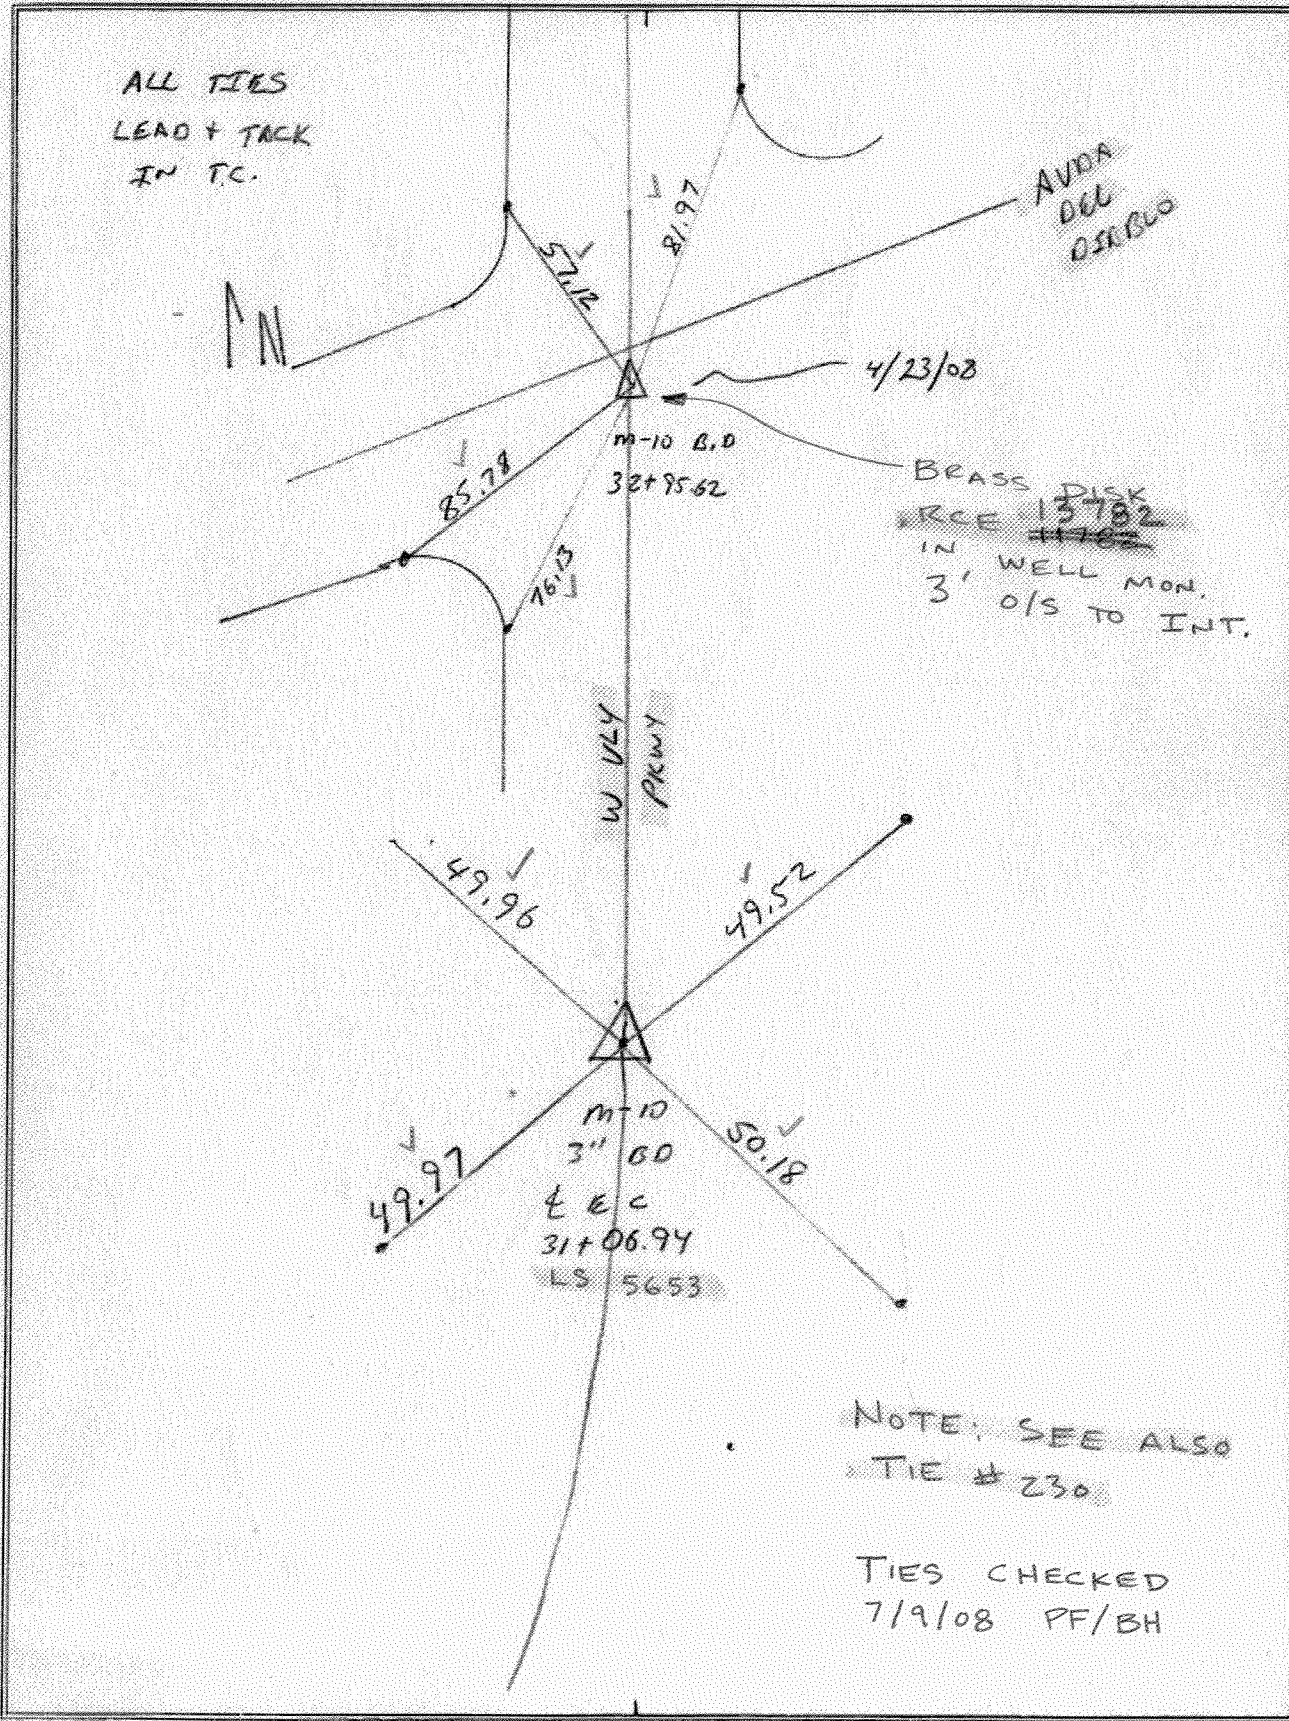 ALL TIES
LEAD + TACK
IN T.C.
N
57.12
81.97
AVDA
DEL
DIABLO
4/23/08
M-10 B.D
32+95.62
85.78
76.13
BRASS DISK
RCE 13782
IN WELL MON.
3' O/S TO INT.
W VLY
PKWY
49.96
49.52
M-10
3" BD
℄ E C
31+06.94
LS 5653
49.97
50.18
NOTE: SEE ALSO
TIE # 230
TIES CHECKED
7/9/08 PF/BH